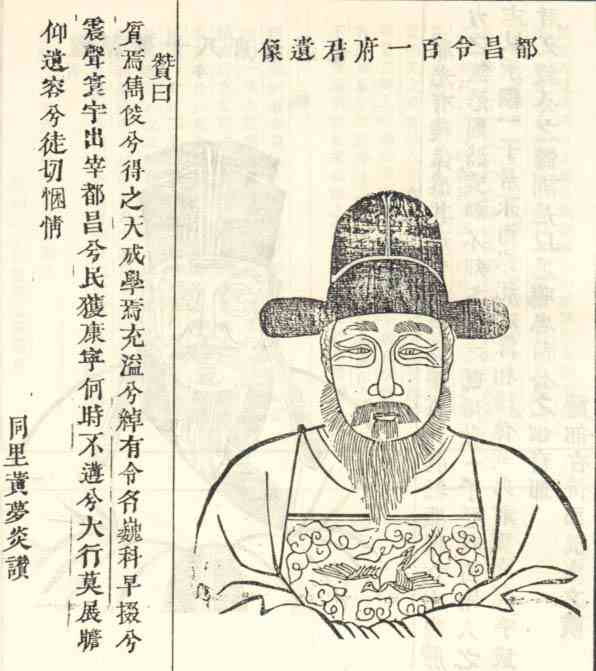 都昌令百一府君遺像
贊曰
質焉儁俊兮得之天成學焉充溢兮綽有令名巍科早掇兮
震聲寰宇出宰都昌兮民獲康寧何時不遘兮大行莫展瞻
仰遺容兮徒切悃情
同里黃夢炎讚